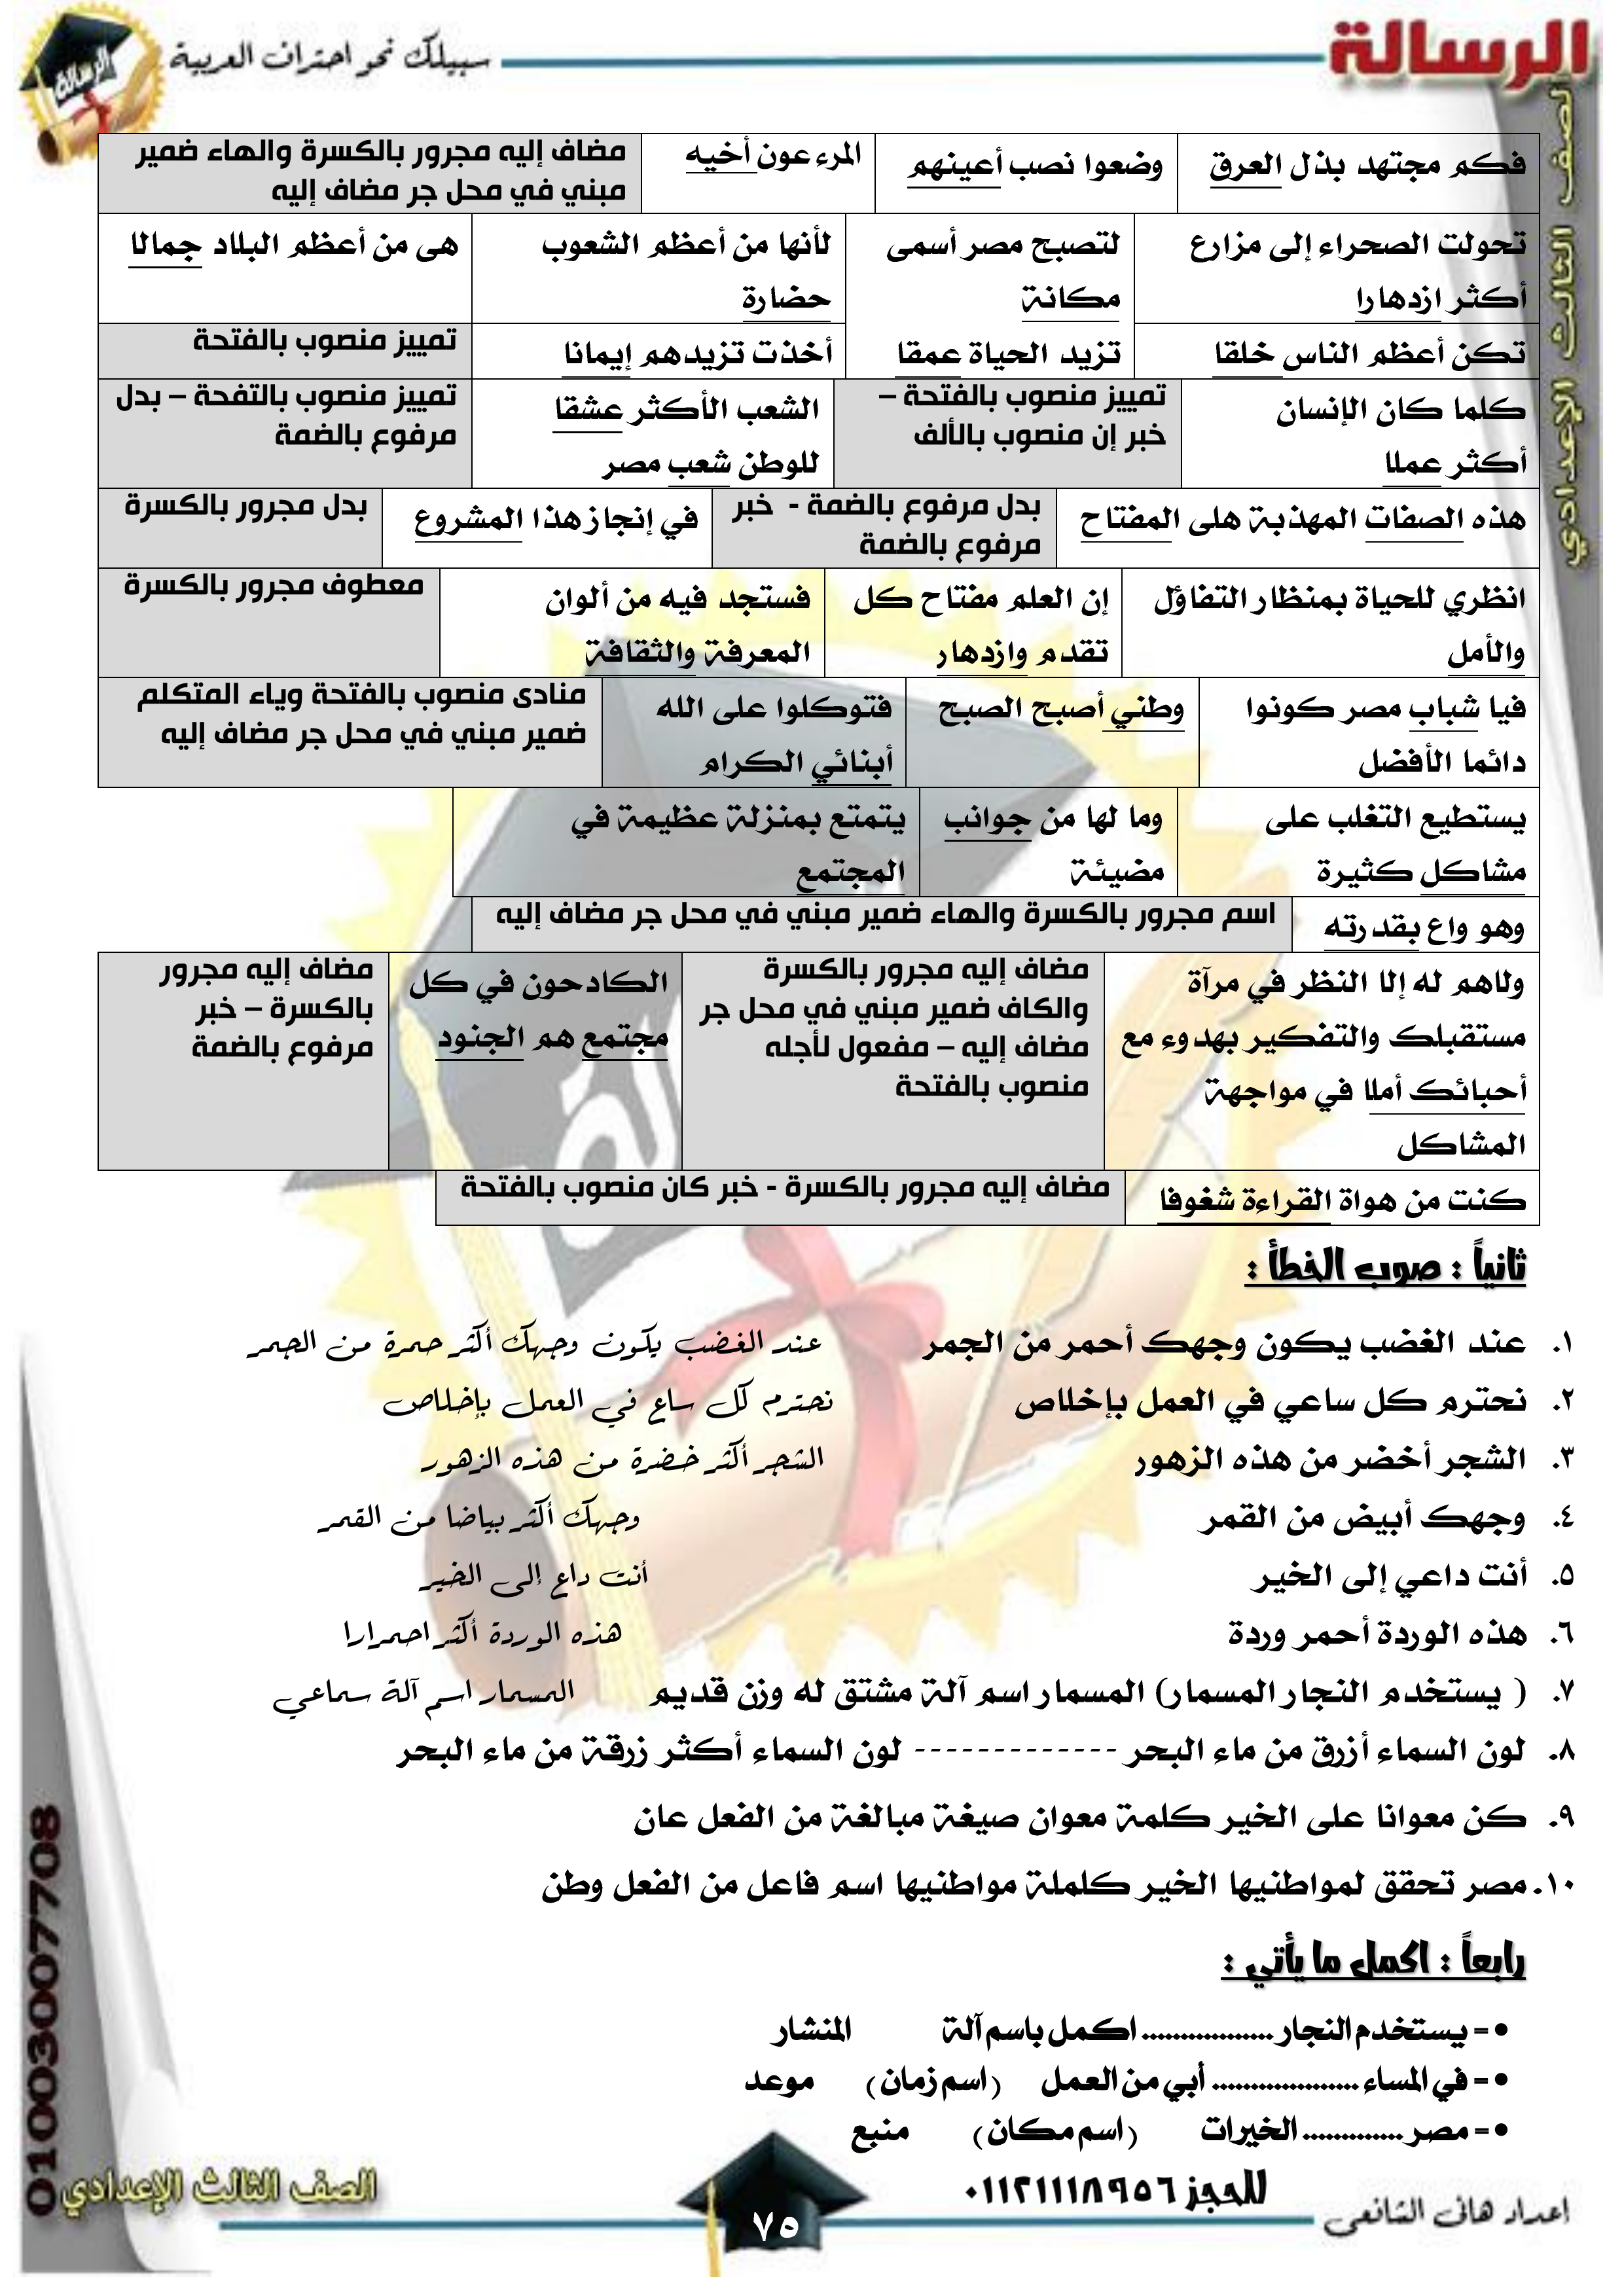 الرسالة
سبيلك نحو احتراف العربية
الرسالة
الصف الثالث الإعدادي
فكم مجتهد بذل العرق
وضعوا نصب أعينهم
المرء عون أخيه
مضاف إليه مجرور بالكسرة والهاء ضمير
مبني في محل جر مضاف إليه
تحولت الصحراء إلى مزارع
أكثر ازدهارا
لتصبح مصر أسمى
مكانة
لأنها من أعظم الشعوب
حضارة
هى من أعظم البلاد جمالا
تكن أعظم الناس خلقا
تزيد الحياة عمقا
أخذت تزيدهم إيمانا
تمييز منصوب بالفتحة
كلما كان الإنسان
أكثر عملا
تمييز منصوب بالفتحة –
خبر إن منصوب بالألف
الشعب الأكثر عشقا
للوطن شعب مصر
تمييز منصوب بالتفحة – بدل
مرفوع بالضمة
هذه الصفات المهذبة هلى المفتاح
بدل مرفوع بالضمة - خبر
مرفوع بالضمة
في إنجاز هذا المشروع
بدل مجرور بالكسرة
انظري للحياة بمنظار التفاؤل
والأمل
إن العلم مفتاح كل
تقدم وازدهار
فستجد فيه من ألوان
المعرفة والثقافة
معطوف مجرور بالكسرة
فيا شباب مصر كونوا
دائما الأفضل
وطني أصبح الصبح
فتوكلوا على الله
أبنائي الكرام
منادى منصوب بالفتحة وياء المتكلم
ضمير مبني في محل جر مضاف إليه
يستطيع التغلب على
مشاكل كثيرة
وما لها من جوانب
مضيئة
يتمتع بمنزلة عظيمة في
المجتمع
وهو واع بقدرته
اسم مجرور بالكسرة والهاء ضمير مبني في محل جر مضاف إليه
ولاهم له إلا النظر في مرآة
مستقبلك والتفكير بهدوء مع
أحبائك أملا في مواجهة
المشاكل
مضاف إليه مجرور بالكسرة
والكاف ضمير مبني في محل جر
مضاف إليه – مفعول لأجله
منصوب بالفتحة
الكادحون في كل
مجتمع هم الجنود
مضاف إليه مجرور
بالكسرة – خبر
مرفوع بالضمة
كنت من هواة القراءة شغوفا
مضاف إليه مجرور بالكسرة - خبر كان منصوب بالفتحة
ثانياً : صوب الخطأ :
١. عند الغضب يكون وجهك أحمر من الجمر عند الغضب يكون وجهك أكثر حمرة من الجمر
٢. نحترم كل ساعي في العمل بإخلاص نحترم كل ساع في العمل بإخلاص
٣. الشجر أخضر من هذه الزهور الشجر أكثر خضرة من هذه الزهور
٤. وجهك أبيض من القمر وجهك أكثر بياضا من القمر
٥. أنت داعي إلى الخير أنت داع إلى الخير
٦. هذه الوردة أحمر وردة هذه الوردة أكثر احمرارا
٧. ( يستخدم النجار المسمار) المسمار اسم آلة مشتق له وزن قديم المسمار اسم آلة سماعي
٨. لون السماء أزرق من ماء البحر ------------- لون السماء أكثر زرقة من ماء البحر
٩. كن معوانا على الخير كلمة معوان صيغة مبالغة من الفعل عان
١٠. مصر تحقق لمواطنيها الخير كلملة مواطنيها اسم فاعل من الفعل وطن
رابعاً : اكمل ما يأتي :
• =يستخدم النجار................. اكمل باسم آلة المنشار
• =في المساء ................... أبي من العمل ( اسم زمان ) موعد
• =مصر ............. الخيرات ( اسم مكان ) منبع
01003007708
الصف الثالث الإعدادي
٧٥
للحجز ٠١١٢١١١٨٩٥٦
اعداد هانى الشافعى